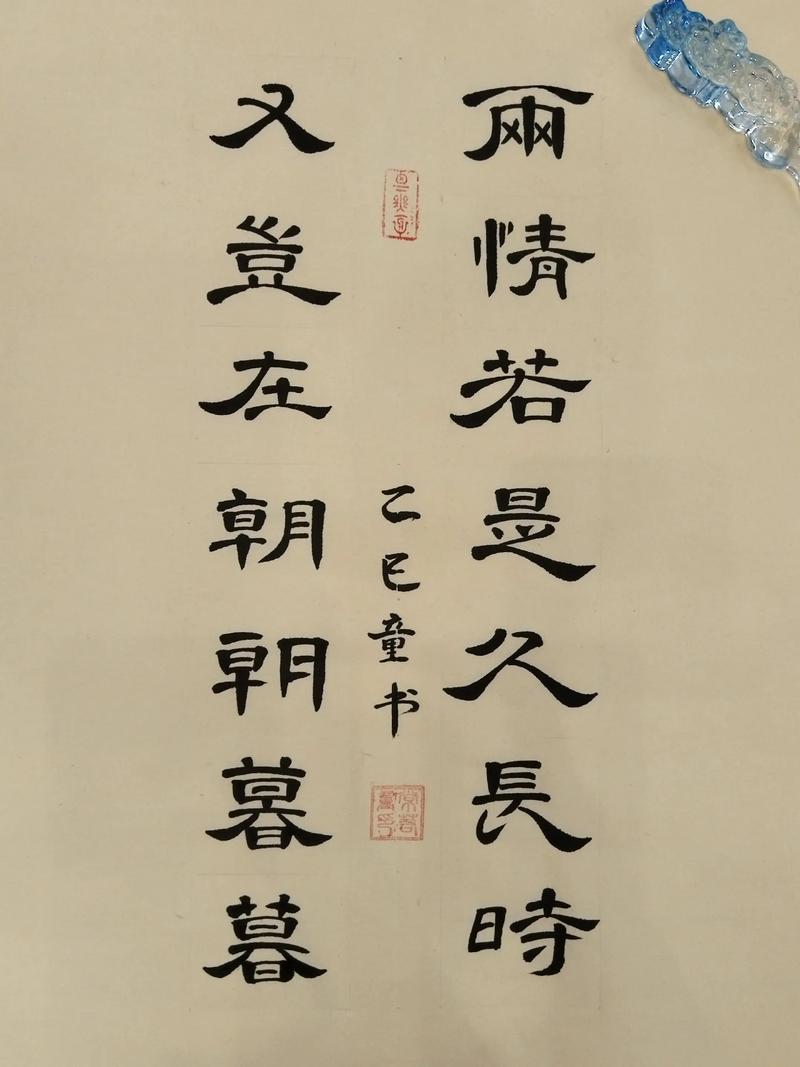 兩情若是久長時
又豈在朝朝暮暮
乙巳童书